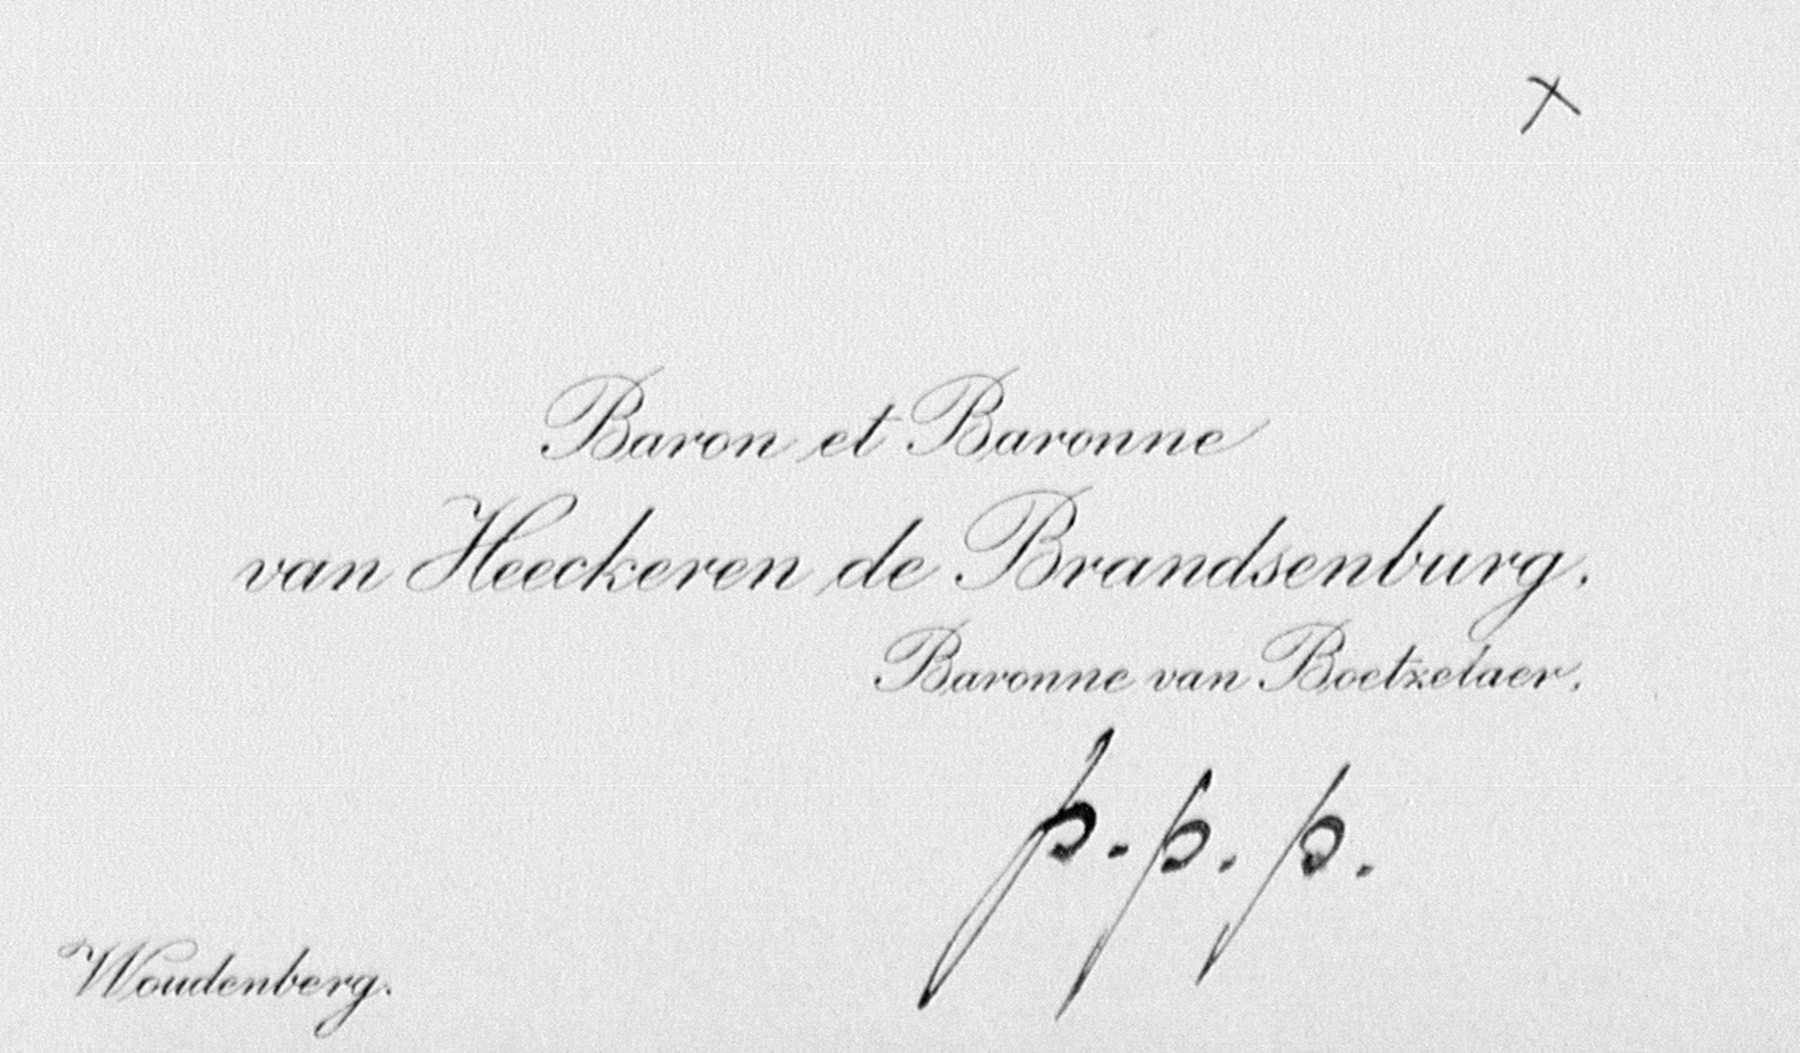 Baron et Baronne
van Heeckeren de Brandsenburg.
Baronne van Boetzelaer.
p. p. p.
Woudenberg.